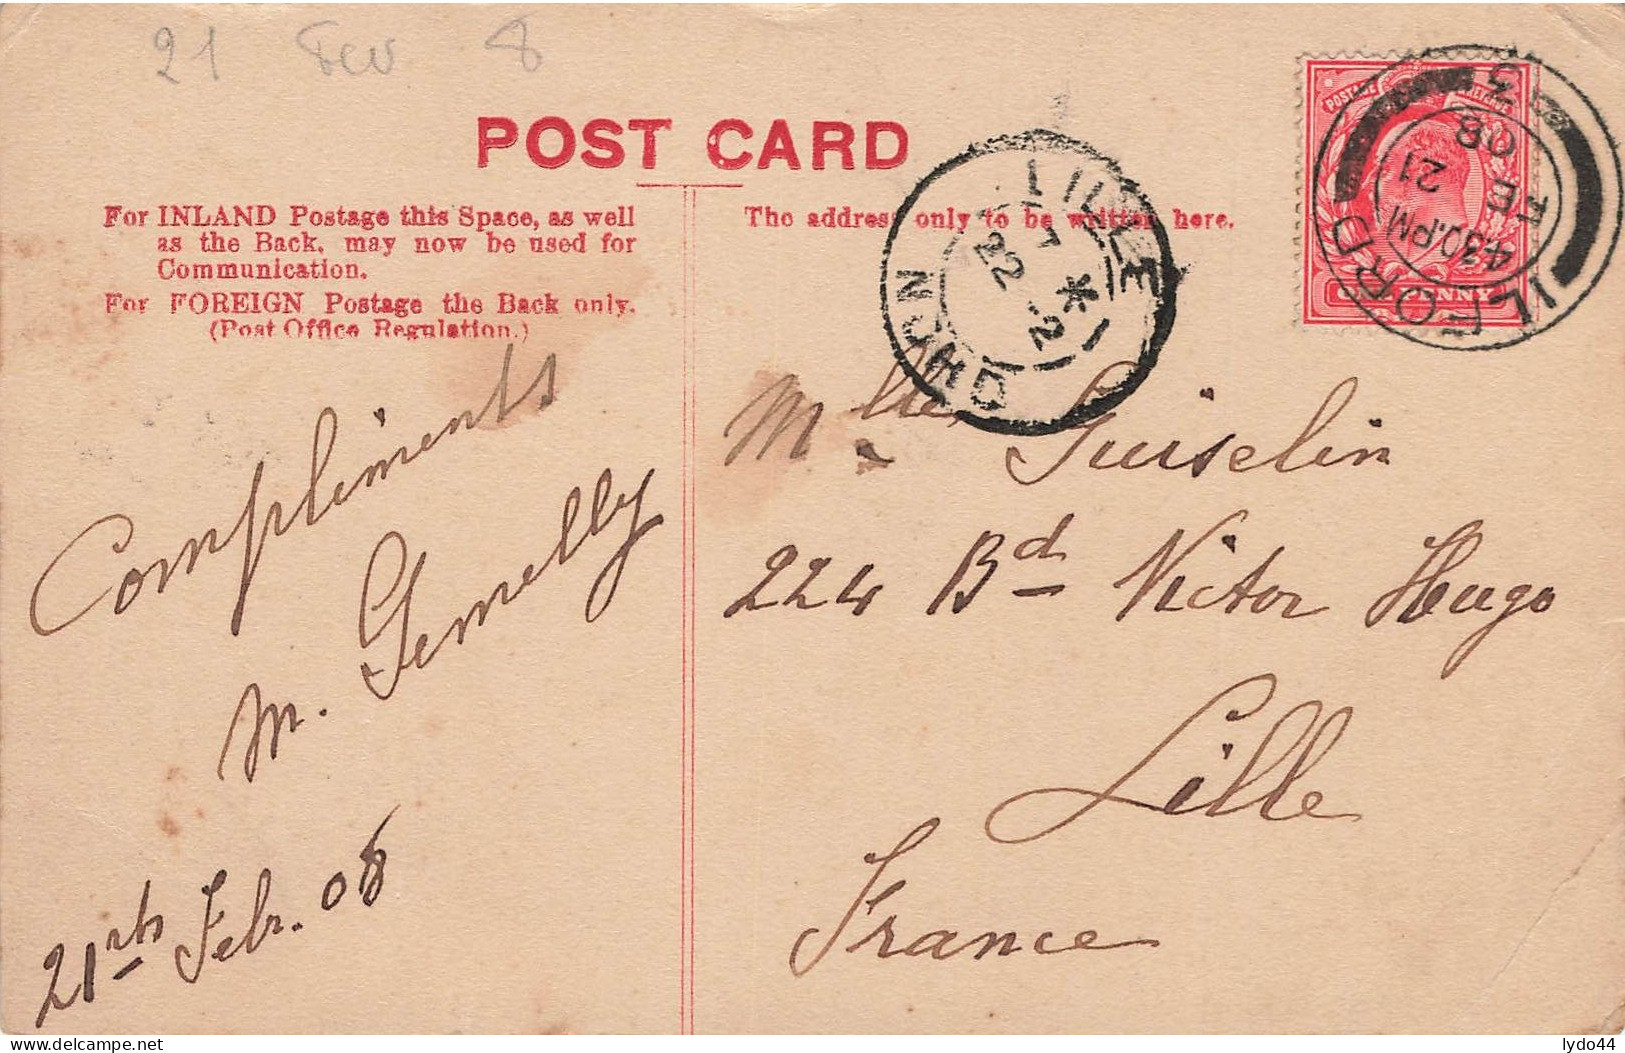 21 Fev 8
POST CARD
For INLAND Postage this Space, as well
as the Back, may now be used for
Communication.
For FOREIGN Postage the Back only.
(Post Office Regulation.)
The address only to be written here.
LILLE
22
2
NORD
POSTAGE
PENNY
ILFORD
4.30.PM
FE 21
08
3
Compliments
M. Gemelly
21th Febr. 08
Mlle Guiselin
224 Bd Victor Hugo
Lille
France
delcampe.net
lydo44